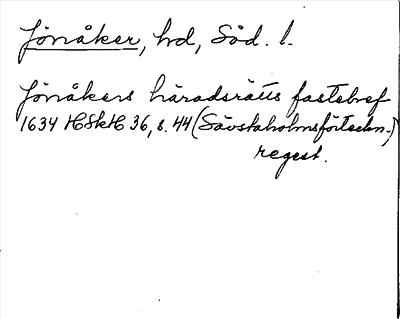 Jönåker, hd, Söd. l.
Jönåkers häradsrätts fastebref
1634 HSkH 36, s. 44 (Sävstaholmsförteckn.)
regest.